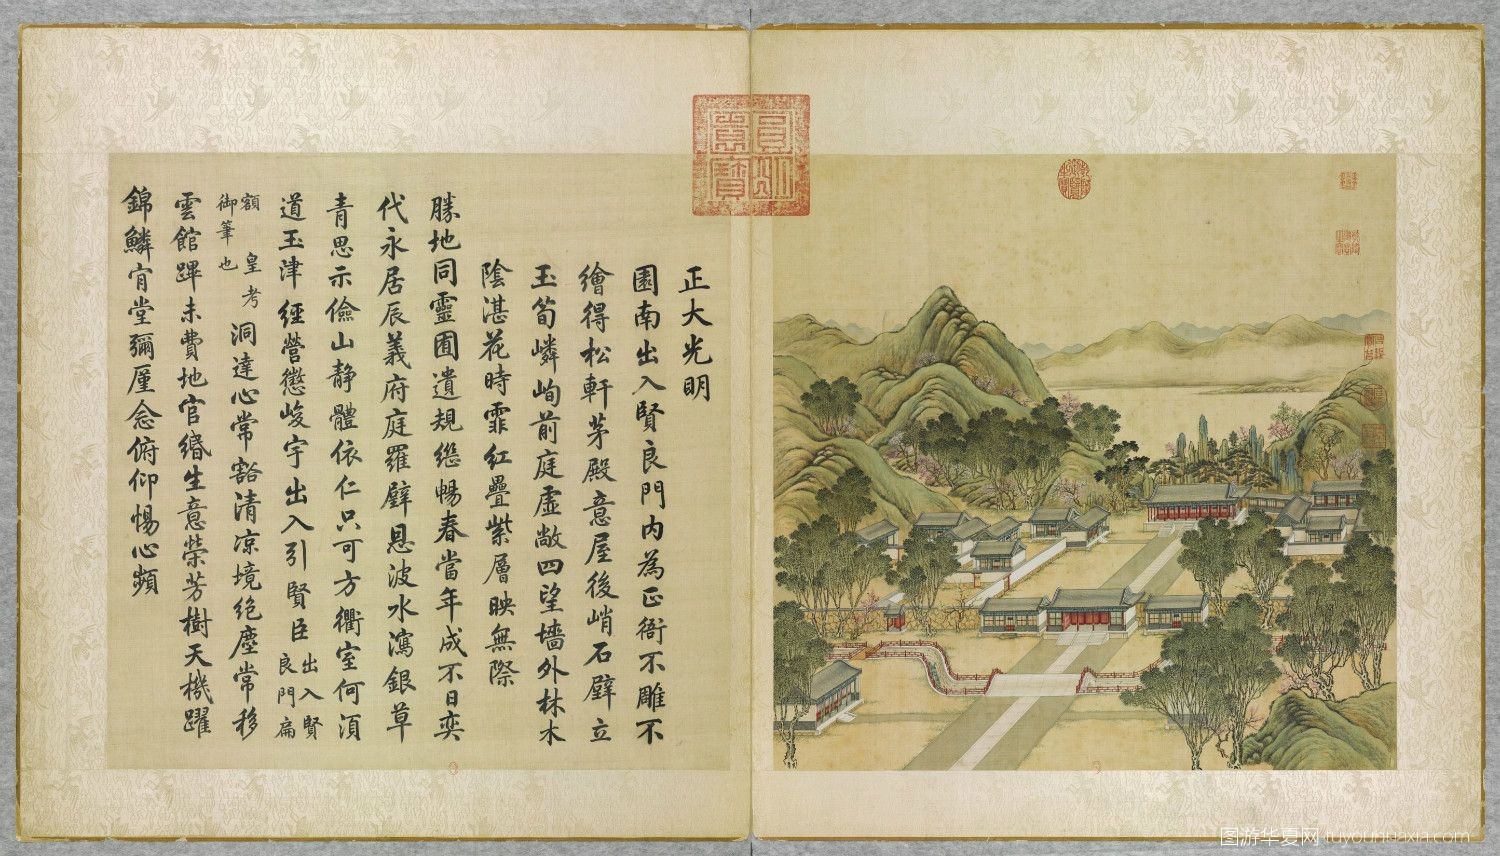 正大光明
園南出入賢良門內為正衙不雕不
繪得松軒茅殿意屋後峭石壁立
玉筍嶙峋前庭虛敞四望墻外林木
陰湛花時霏紅疊紫層映無際
勝地同靈囿遺規繼暢春當年成不日奕
代永居辰義府庭羅壁恩波水瀉銀草
青思示儉山靜體依仁只可方衢室何須
道玉津經營懲峻宇出入引賢臣
出入賢
良門扁
額 皇考
御筆也
洞達心常豁清涼境絕塵常移
雲館蹕未費地官緡生意榮芳樹天機躍
錦鱗肯堂彌廑念俯仰惕心頻
圓明
寶
图游华夏网 tuyouhuaxia.com